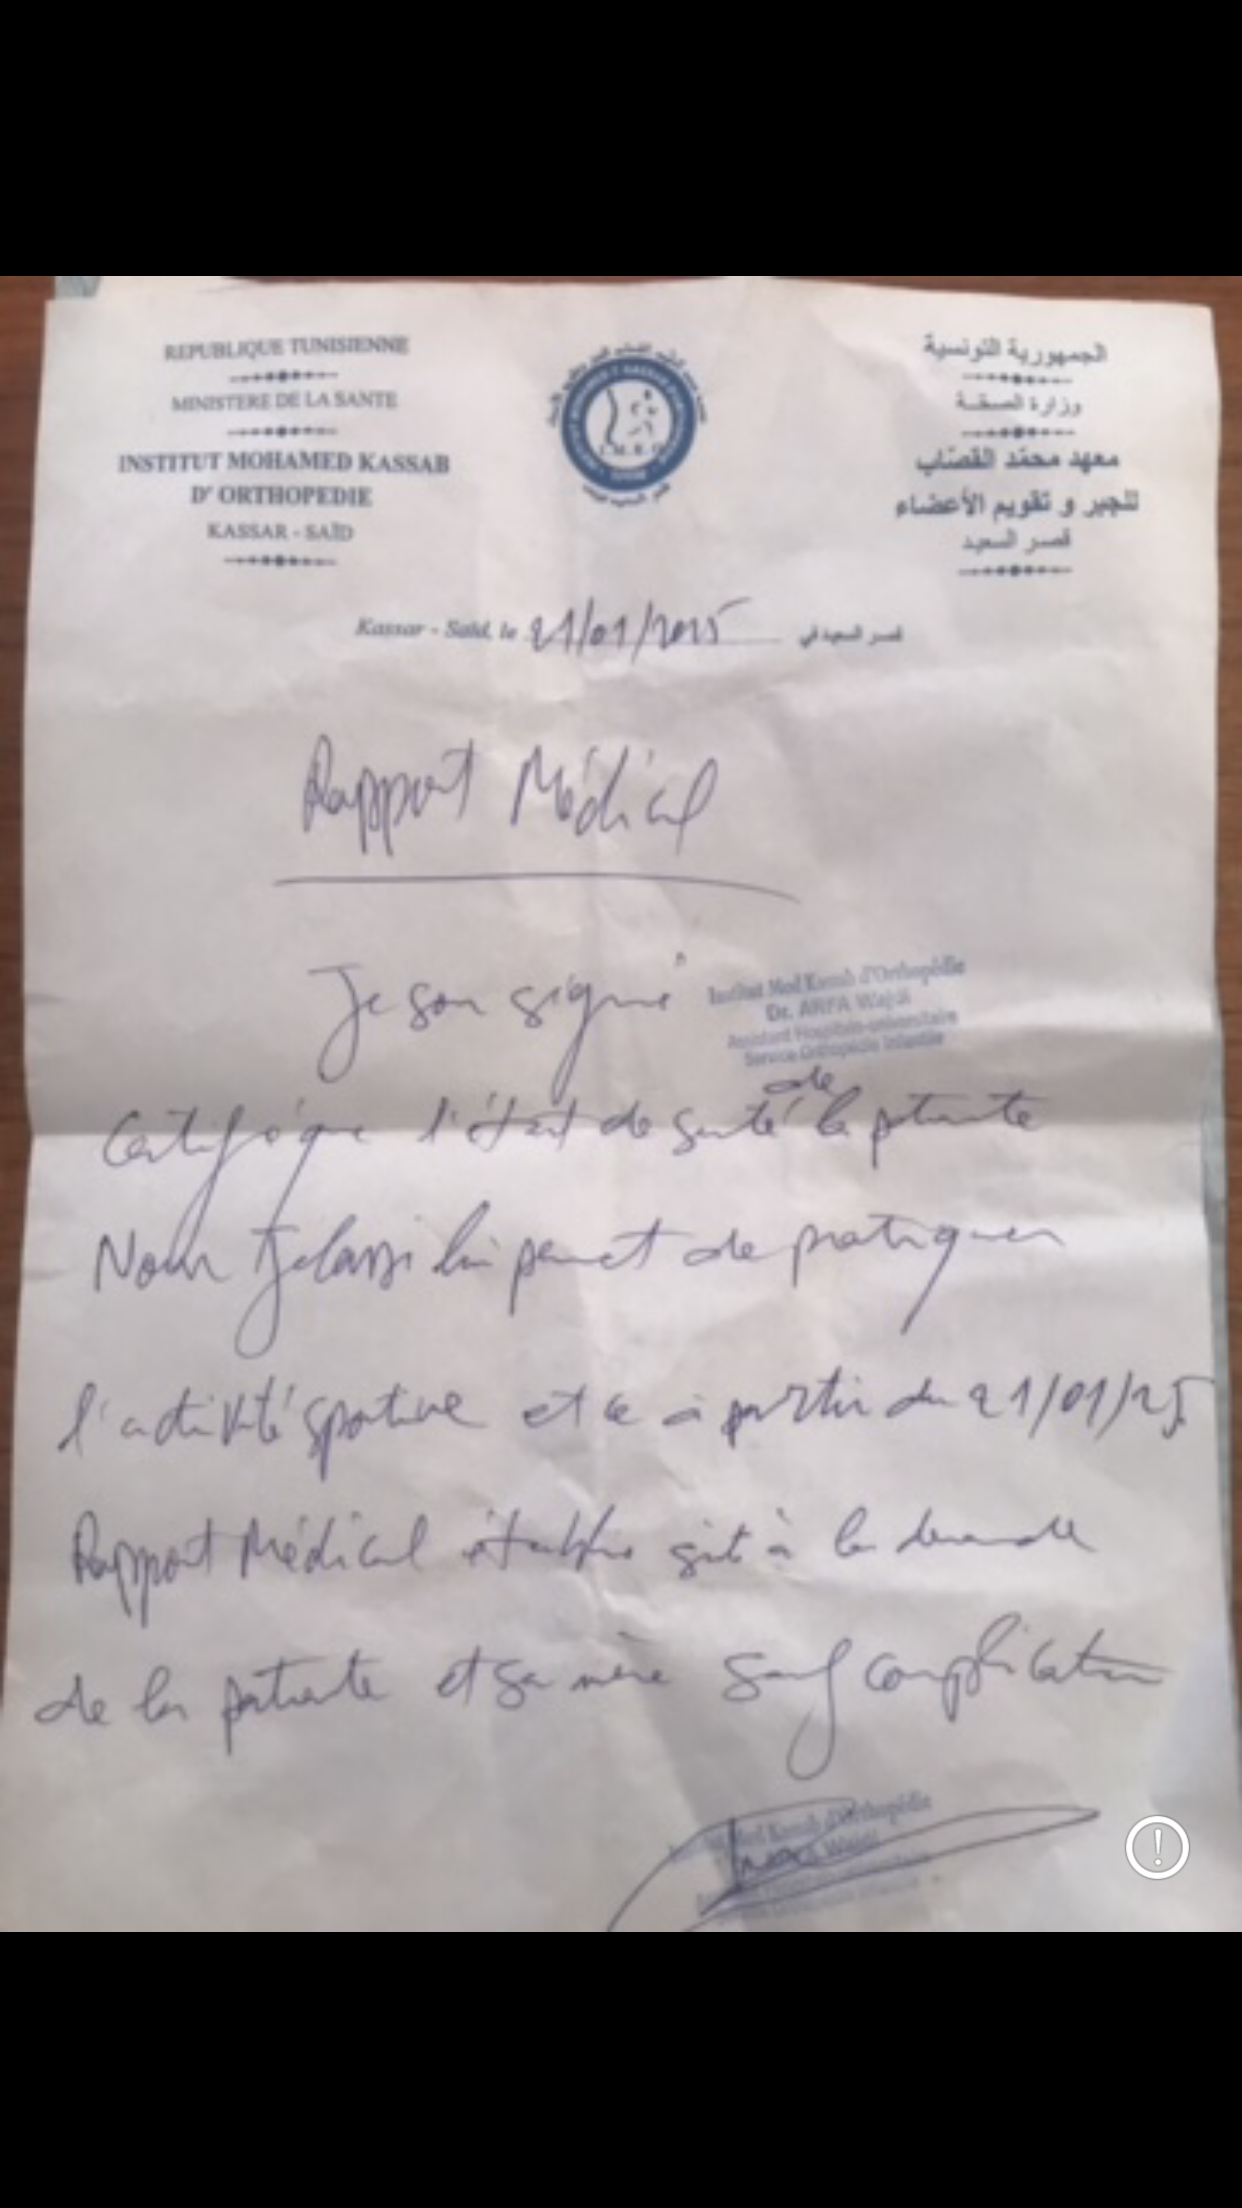 REPUBLIQUE TUNISIENNE
MINISTERE DE LA SANTE
INSTITUT MOHAMED KASSAB
D' ORTHOPEDIE
KASSAR - SAÏD
الجمهورية التونسية
وزارة الصحة
معهد محمد القصّاب
للجبر و تقويم الأعضاء
قصر السعيد
Kassar - Saïd, le 21/01/2025 قصر السعيد في
Rapport Médical
Je son signé
Institut Med Kassab d'Orthopédie
Dr. ARFA Wajdi
Assistant Hospitalo-universitaire
Service Orthopédie Infantile
de
Certifie que l'état de santé la patiente
Nour Jelassi lui permet de pratiquer
l'activité sportive et ce à partir du 21/01/25
Rapport Médical à la demande
de la patiente et sa mère sauf complication
Med Kassab d'Orthopédie
Wajdi